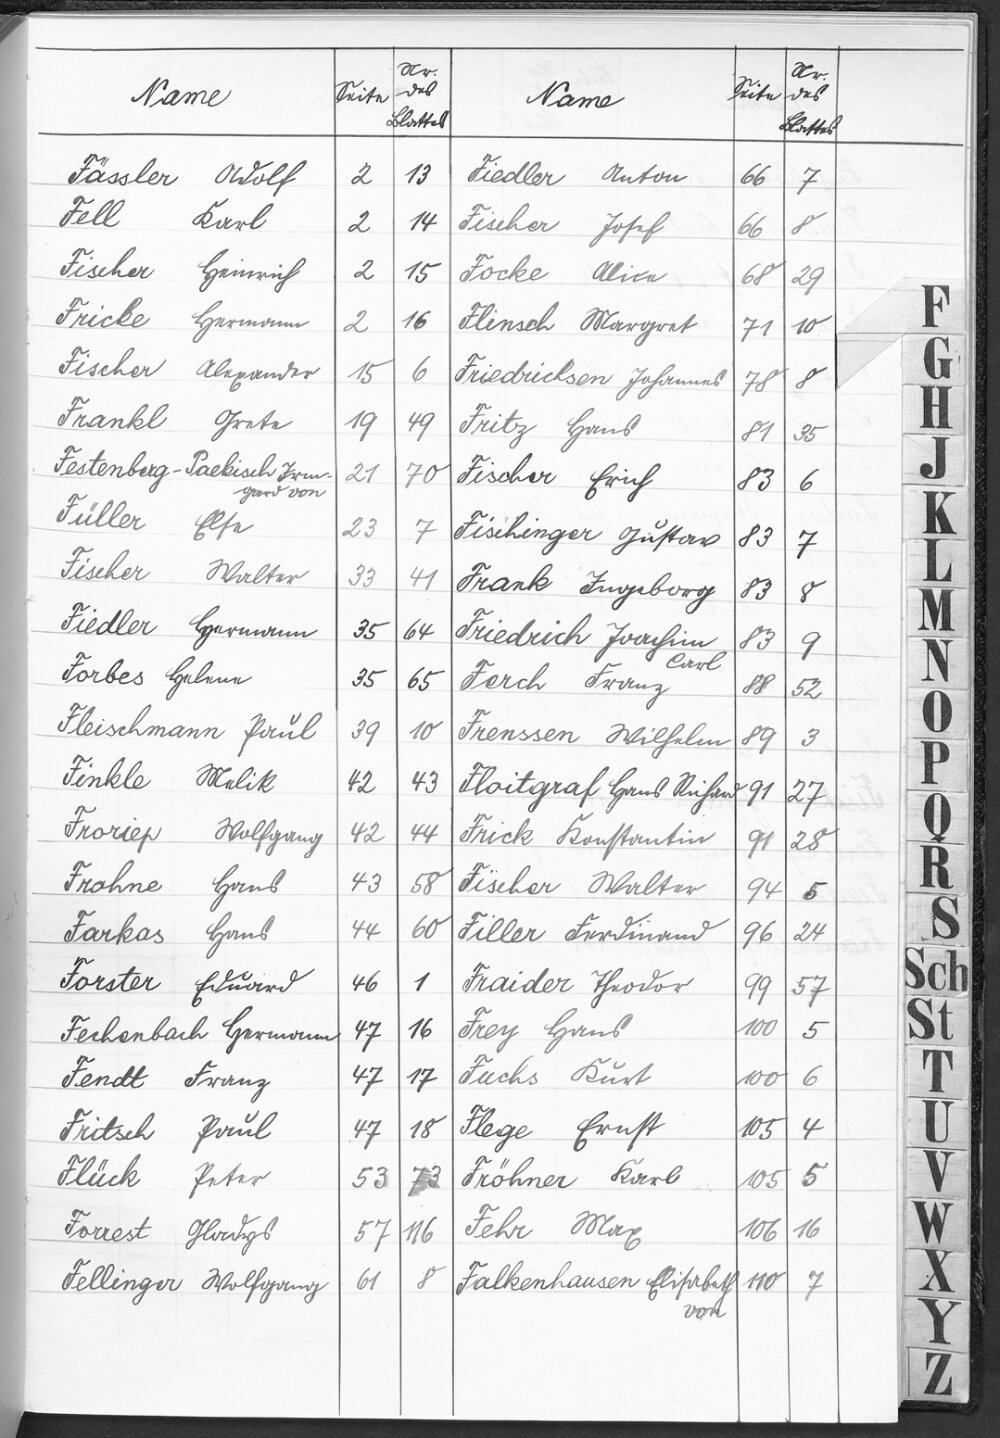 Name Seite Nr. des Blattes Name Seite Nr. des Blattes
Fässler Adolf 2 13
Fell Karl 2 14
Fischer Heinrich 2 15
Fricke Hermann 2 16
Fischer Alexander 15 6
Frankl Grete 19 49
Festenberg-Packisch Irm-
gard von 21 70
Füller Else 23 7
Fischer Walter 33 41
Fiedler Hermann 35 64
Forbes Helene 35 65
Fleischmann Paul 39 10
Finkle Melik 42 43
Froriep Wolfgang 42 44
Frohne Hans 43 58
Farkas Hans 44 60
Forster Eduard 46 1
Fechenbach Hermann 47 16
Fendt Franz 47 17
Fritsch Paul 47 18
Flück Peter 53 73
Forrest Gladys 57 116
Fellinger Wolfgang 61 8
Fiedler Anton 66 7
Fischer Josef 66 8
Focke Alice 68 29
Flinsch Margret 71 10
Friedricksen Johannes 78 8
Fritz Hans 81 35
Fischer Erich 83 6
Fischinger Gustav 83 7
Frank Ingeborg 83 8
Friedrich Joachim 83 9
Carl
Ferch Franz 88 52
Frenssen Wilhelm 89 3
Floitgraf Hans Richard 91 27
Frick Konstantin 91 28
Fischer Walter 94 5
Filler Ferdinand 96 24
Fraider Theodor 99 57
Frey Hans 100 5
Fuchs Kurt 100 6
Flege Ernst 105 4
Fröhner Karl 105 5
Fehr Max 106 16
Falkenhausen Elisabeth 110 7
von
F
G
H
J
K
L
M
N
O
P
Q
R
S
Sch
St
T
U
V
W
X
Y
Z